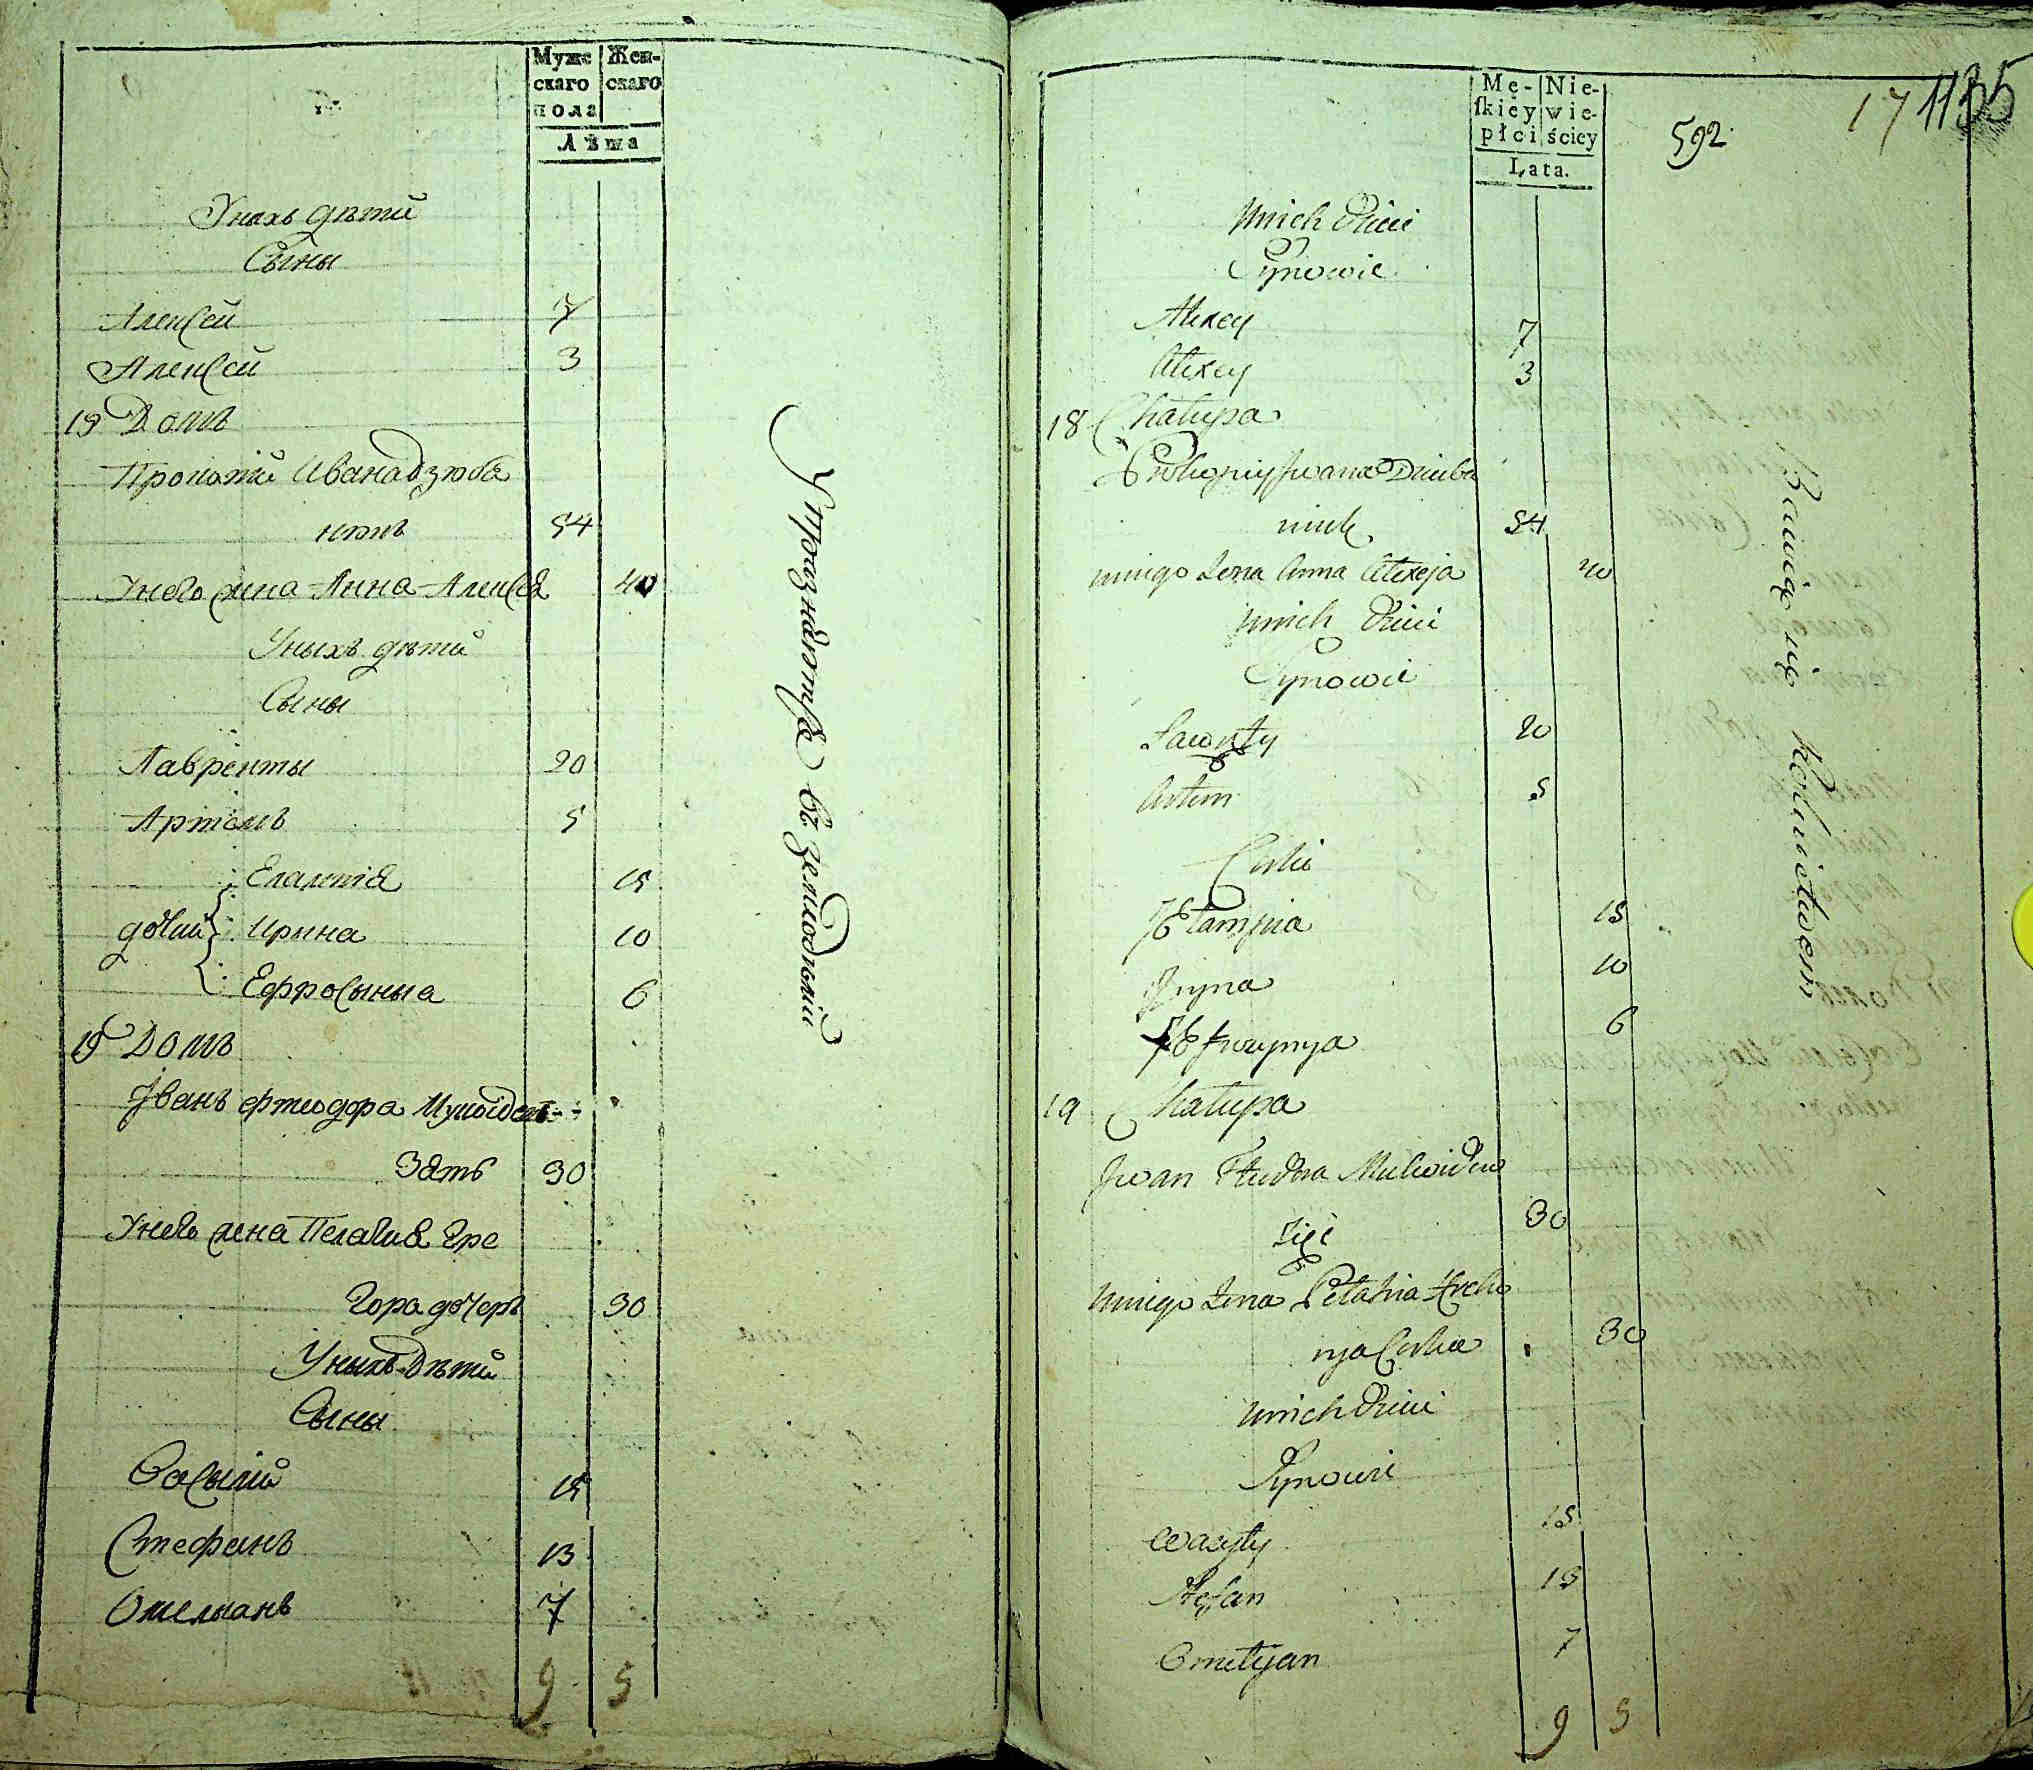 Муже
скаго
пола
Жен-
скаго
Лѣта
Унихъ дѣти
Сыны
Алексей 7
Алексей 3
18 Домъ
Прокопій Ивана Дзюба
нюкъ 54
Унего жена Анна Алексѣя 40
Уныхъ дѣти
Сыны
Лавренты 20
Артемъ 5
Елампія 15
дочки Ирина 10
Ефросыныа 6
19 Домъ
Іванъ Фтеодора
Зять 30
Унего жена Пелагия Гре
гора дочеръ 30
Уныхъ Дѣти
Сыны
Васылій 15
Стефанъ 13
Омельанъ 7
9 5
Упражняются въ земледѣліи
Mę-
skiéy
płci
Nie-
wie-
ściey
Lata.
592
17 1135
Unich Dzieci
Synowie
Alexey 7
Alexey 3
18 Chałupa
Prokopiy Jwana Dziuba
niuk 54
uniego Zona Anna Alexeja 40
unich Dzieci
Synowie
Lawręty 20
Artem 5
Corki
Ełampia 15
Jryna 10
Efrozynya 6
19 Chałupa
Jwan Fteudora
Zięć 30
uniego Zona Pełahia Hreho
rya Corka 30
unich Dzieci
Synowie
Wasyly 15
Stefan 13
Omelyan 7
9 5
Bawią się Rolnictwem